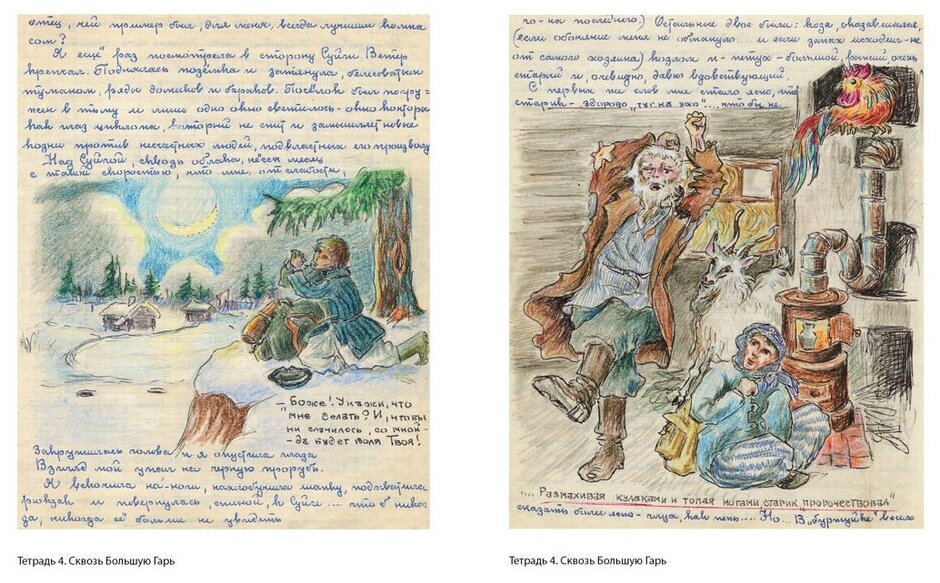 отец, чей пример был, для меня, всегда лучшим компа
сом?
Я ещё раз посмотрела в сторону Суйги Ветер
крепчал. Поднялась позёмка и затянула, белесоватым
туманом, ряды домиков и бараков. Посёлок был погру-
жен в тьму и лишь одно окно светилось - окно конторы
как глаз циклопа, который не спит и замышляет новые
козни против несчастных людей, подвластных его произволу
Над Суйгой, сквозь облака, нёсся месяц
с такой скоростью, что мне, от слабости,
- Боже! Укажи, что
мне делать? И, что бы
ни случилось, со мной-
- да будет воля Твоя!
Закружилась голова и я опустила глаза
Взгляд мой упал на чёрную прорубь.
Я вскочила на ноги, нахлобучила шапку, подхватила
рюкзак и повернулась, спиной, к Суйге ... чтоб никог
да, никогда её больше не увидеть
Тетрадь 4. Сквозь Большую Гарь
го - на последнего.) Остальные двое были: коза, оказавшаяся,
(если обоняние меня не обмануло ... и если запах исходил - не
от самого хозяина) козлом и - петух - большой, рыжий очень
старый и, очевидно, давно вдовствующий.
С первых же слов мне стало ясно, что
старик - здорово „туг на ухо" ... что бы не
„... Размахивая кулаками и топая ногами, старик „пророчествовал"
сказать более ясно - глух, как пень .... Но ... В „буржуйке" весело
Тетрадь 4. Сквозь Большую Гарь